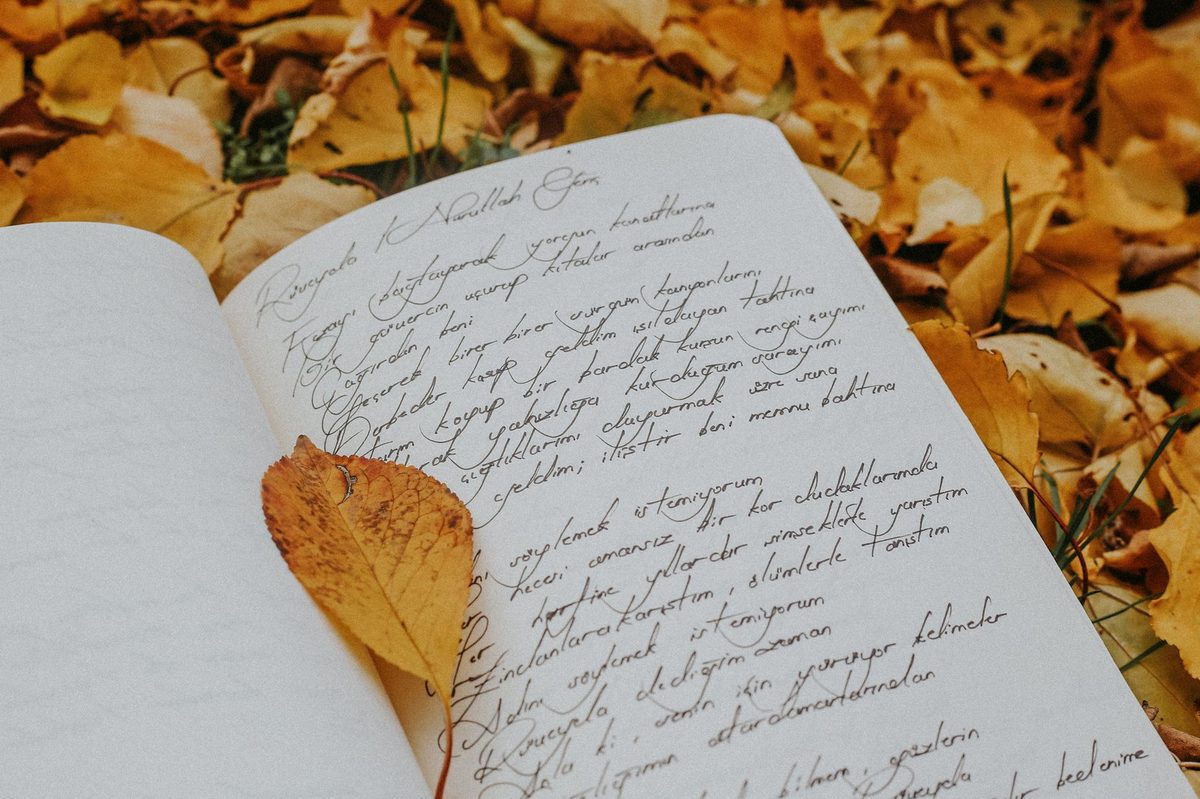 Rüveyda / Nurullah Genç
Fezayı bağlayarak yorgun kanatlarına
Bir güvercin uçurup kıtalar arasından
Çağırdın beni
Geçerek birer birer vurgun kanyonlarını
Derbeder koşup geldim ışıldayan tahtına
koyup bir bardak kurşun rengi çayımı
yalnızlığa kurduğum sarayımı
çığlıklarımı duyurmak üzre sana
geldim; iliştir beni memnu bahtına
söylemek istemiyorum
hecesi amansız bir kor dudaklarımda
harfine yıllardır şimşeklerle yarıştım
Zindanlara karıştım, ölümlerle tanıştım
Adını söylemek istemiyorum
Rüveyda dediğim zaman
ki, senin için yürüyor kelimeler
atardamarlarından
bilmem, gözlerin
Rüveyda